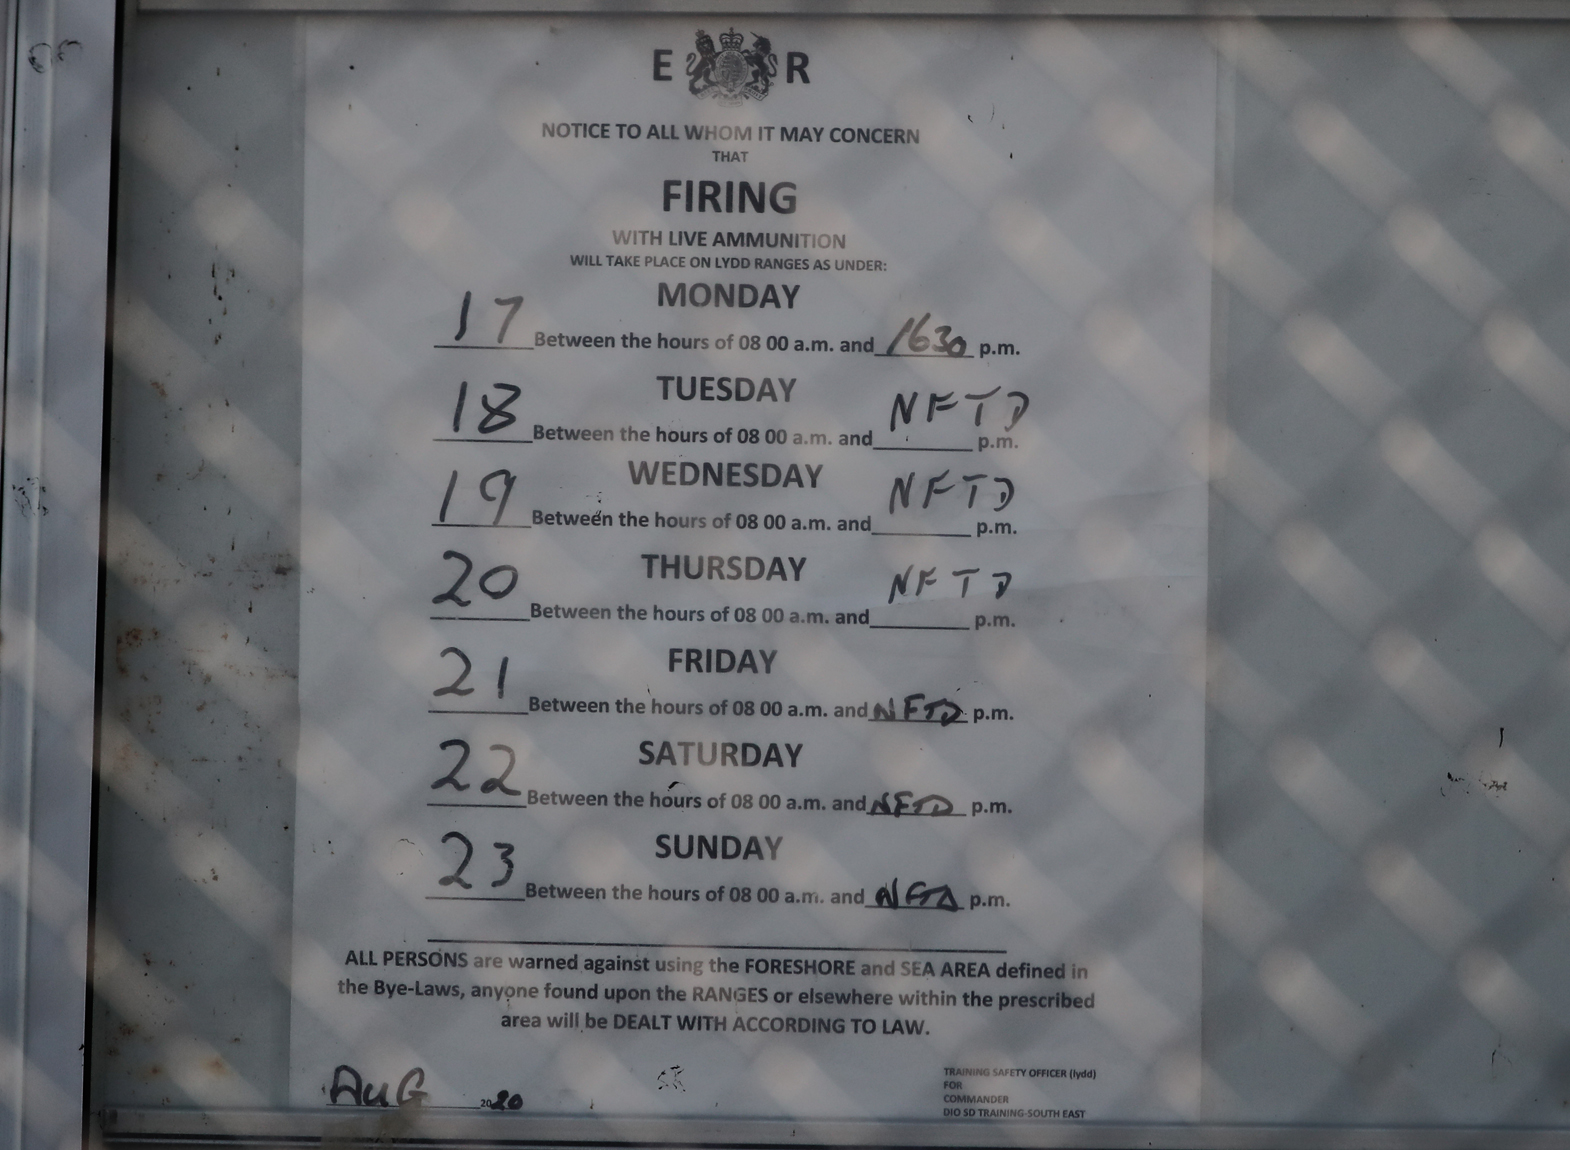 E R
NOTICE TO ALL WHOM IT MAY CONCERN
THAT
FIRING
WITH LIVE AMMUNITION
WILL TAKE PLACE ON LYDD RANGES AS UNDER:
MONDAY
17 Between the hours of 08 00 a.m. and 1630 p.m.
TUESDAY
18 Between the hours of 08 00 a.m. and NFTD p.m.
WEDNESDAY
19 Between the hours of 08 00 a.m. and NFTD p.m.
THURSDAY
20 Between the hours of 08 00 a.m. and NFTD p.m.
FRIDAY
21 Between the hours of 08 00 a.m. and NFTD p.m.
SATURDAY
22 Between the hours of 08 00 a.m. and NFTD p.m.
SUNDAY
23 Between the hours of 08 00 a.m. and NFTD p.m.
ALL PERSONS are warned against using the FORESHORE and SEA AREA defined in
the Bye-Laws, anyone found upon the RANGES or elsewhere within the prescribed
area will be DEALT WITH ACCORDING TO LAW.
AUG 2020
TRAINING SAFETY OFFICER (lydd)
FOR
COMMANDER
DIO SD TRAINING-SOUTH EAST